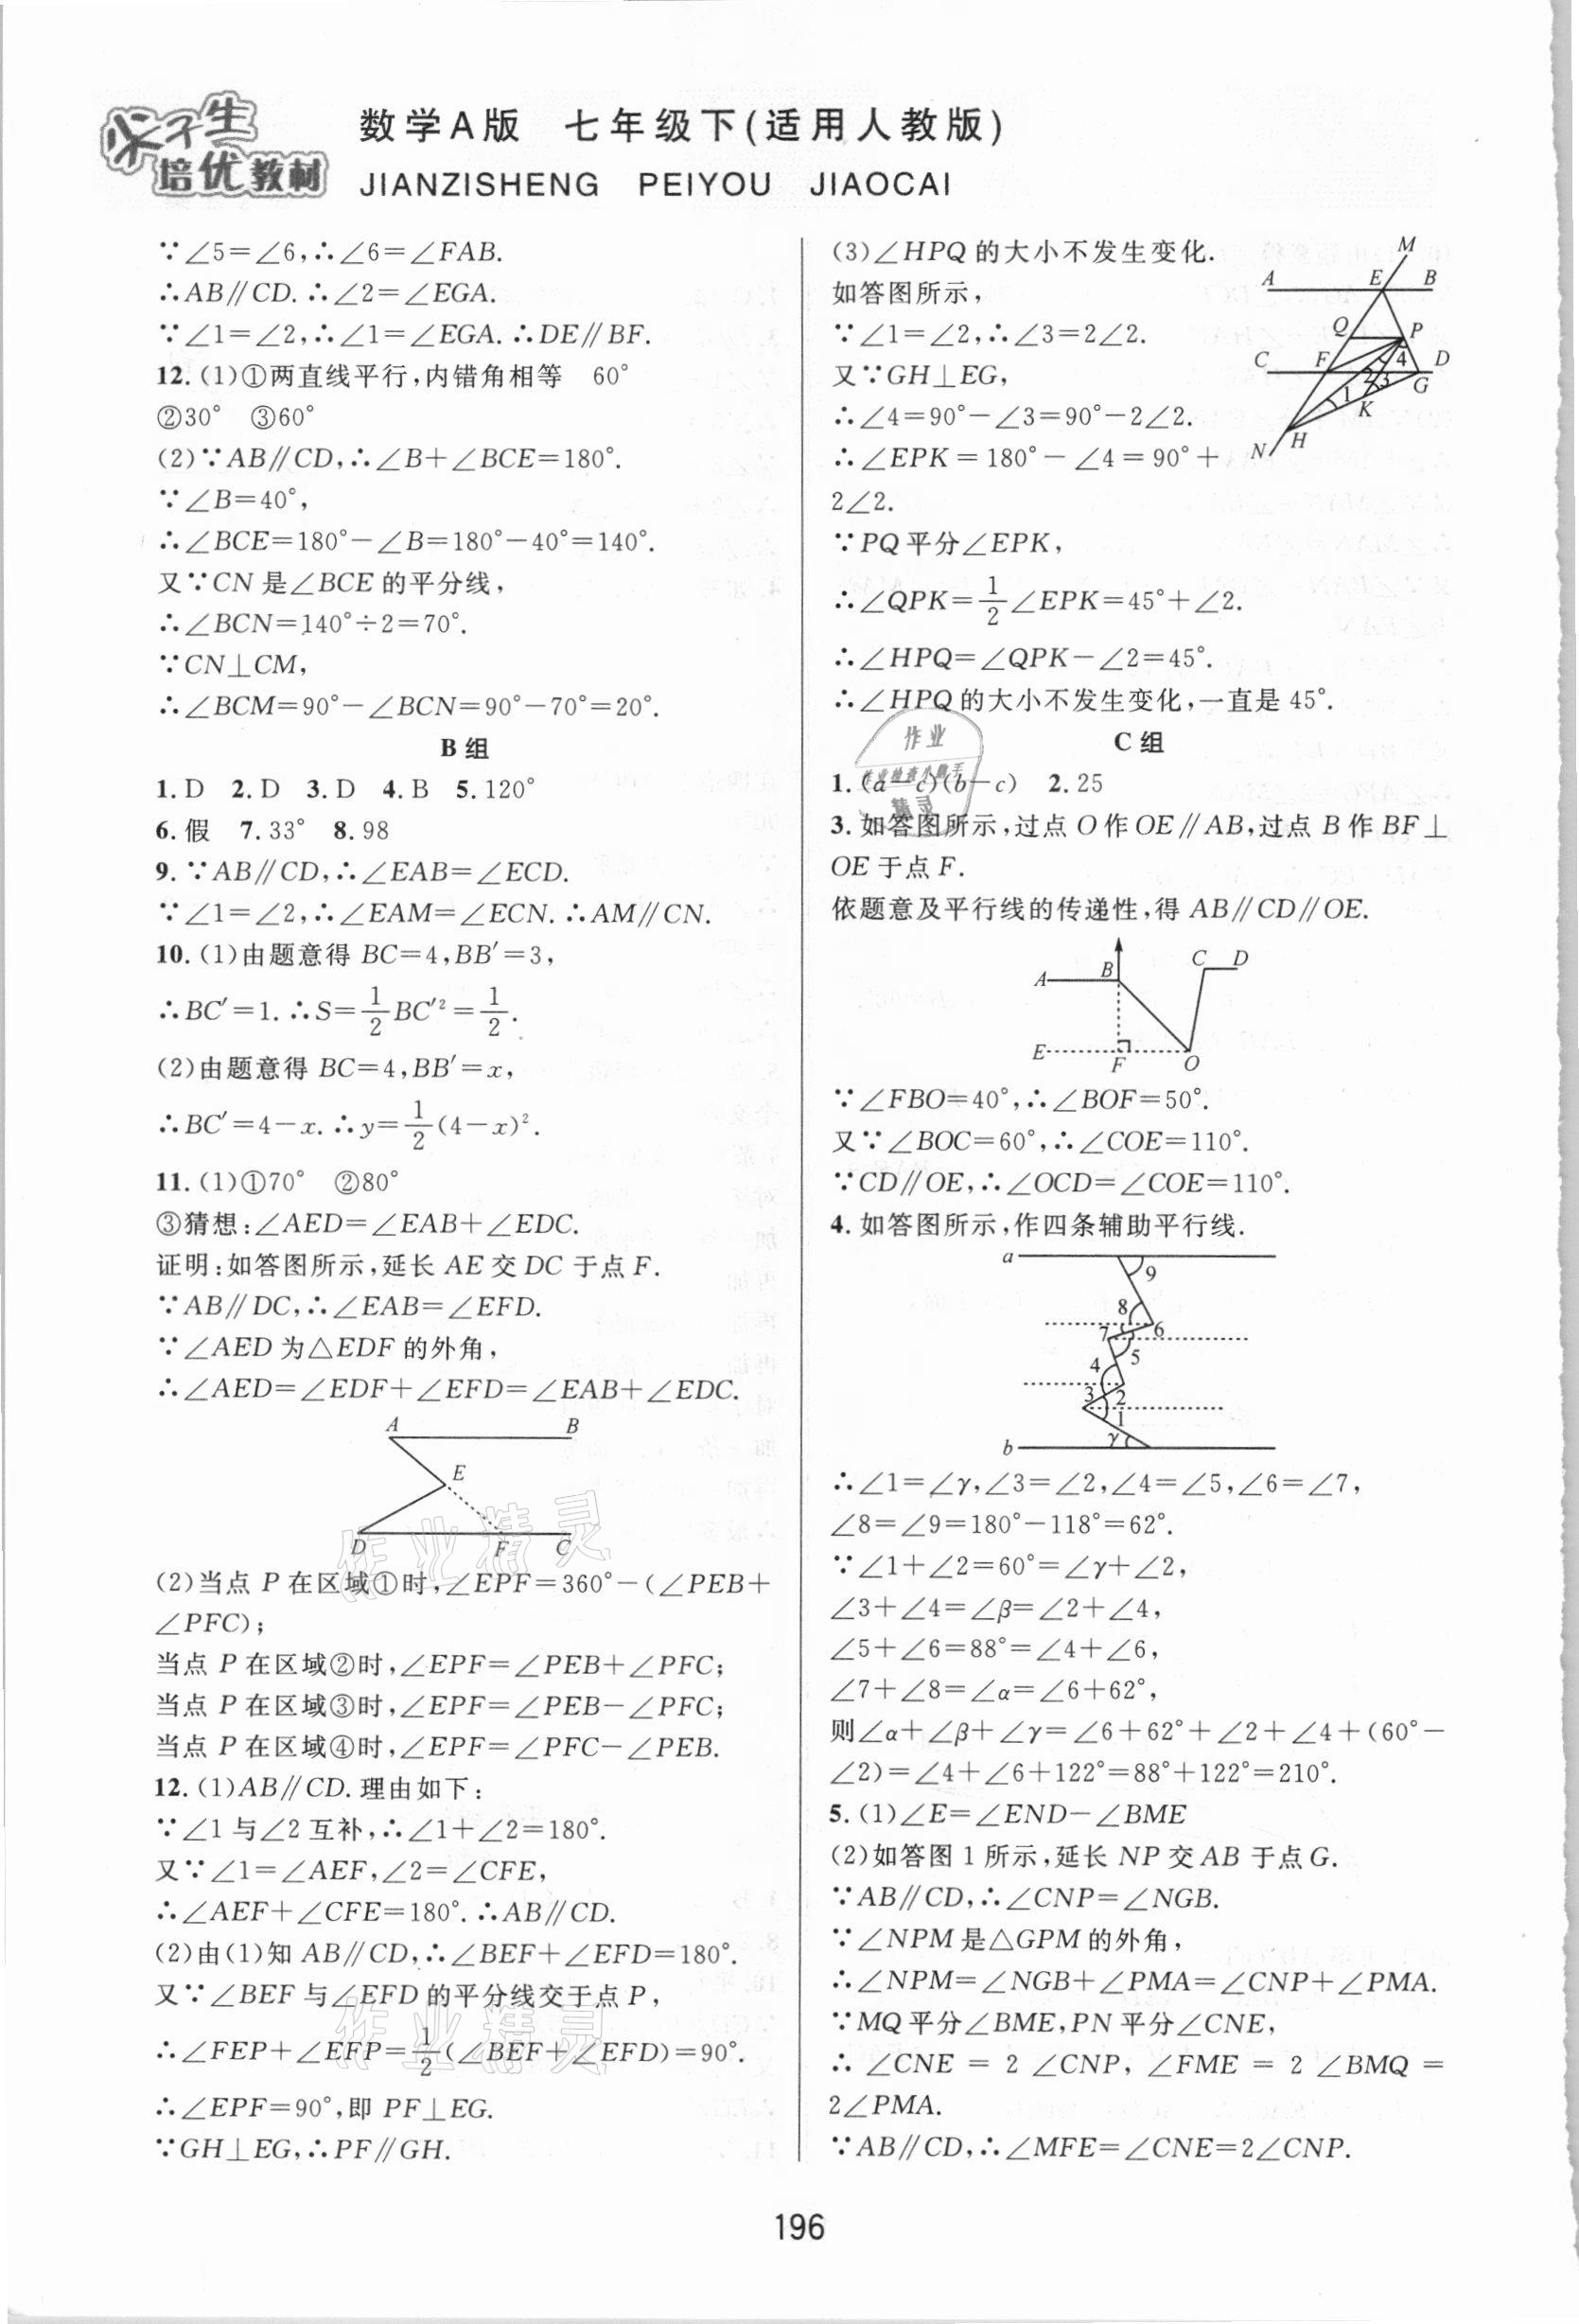 尖子生
培优教材
数学A版 七年级下(适用人教版)
JIANZISHENG PEIYOU JIAOCAI
∵∠5=∠6,∴∠6=∠FAB.
∴AB∥CD.∴∠2=∠EGA.
∵∠1=∠2,∴∠1=∠EGA.∴DE∥BF.
12.(1)①两直线平行,内错角相等 60°
②30° ③60°
(2)∵AB∥CD,∴∠B+∠BCE=180°.
∵∠B=40°,
∴∠BCE=180°-∠B=180°-40°=140°.
又∵CN是∠BCE的平分线,
∴∠BCN=140°÷2=70°.
∵CN⊥CM,
∴∠BCM=90°-∠BCN=90°-70°=20°.
B组
1.D 2.D 3.D 4.B 5.120°
6.假 7.33° 8.98
9.∵AB∥CD,∴∠EAB=∠ECD.
∵∠1=∠2,∴∠EAM=∠ECN.∴AM∥CN.
10.(1)由题意得BC=4,BB′=3,
∴BC′=1.∴S=1/2BC′²=1/2.
(2)由题意得BC=4,BB′=x,
∴BC′=4-x.∴y=1/2(4-x)².
11.(1)①70° ②80°
③猜想:∠AED=∠EAB+∠EDC.
证明:如答图所示,延长AE交DC于点F.
∵AB∥DC,∴∠EAB=∠EFD.
∵∠AED为△EDF的外角,
∴∠AED=∠EDF+∠EFD=∠EAB+∠EDC.
A B
E
D F C
(2)当点P在区域①时,∠EPF=360°-(∠PEB+
∠PFC);
当点P在区域②时,∠EPF=∠PEB+∠PFC;
当点P在区域③时,∠EPF=∠PEB-∠PFC;
当点P在区域④时,∠EPF=∠PFC-∠PEB.
12.(1)AB∥CD.理由如下:
∵∠1与∠2互补,∴∠1+∠2=180°.
又∵∠1=∠AEF,∠2=∠CFE,
∴∠AEF+∠CFE=180°.∴AB∥CD.
(2)由(1)知AB∥CD,∴∠BEF+∠EFD=180°.
又∵∠BEF与∠EFD的平分线交于点P,
∴∠FEP+∠EFP=1/2(∠BEF+∠EFD)=90°.
∴∠EPF=90°,即PF⊥EG.
∵GH⊥EG,∴PF∥GH.
(3)∠HPQ的大小不发生变化.
如答图所示,
∵∠1=∠2,∴∠3=2∠2.
又∵GH⊥EG,
∴∠4=90°-∠3=90°-2∠2.
∴∠EPK=180°-∠4=90°+
2∠2.
∵PQ平分∠EPK,
∴∠QPK=1/2∠EPK=45°+∠2.
∴∠HPQ=∠QPK-∠2=45°.
∴∠HPQ的大小不发生变化,一直是45°.
M
A E B
Q P
C F 4 D
2 3 G
1 K
N H
C组
1.(a-c)(b-c) 2.25
3.如答图所示,过点O作OE∥AB,过点B作BF⊥
OE于点F.
依题意及平行线的传递性,得AB∥CD∥OE.
A B C D
E F O
∵∠FBO=40°,∴∠BOF=50°.
又∵∠BOC=60°,∴∠COE=110°.
∵CD∥OE,∴∠OCD=∠COE=110°.
4.如答图所示,作四条辅助平行线.
a
9
8
7 6
5
4
3 2
1
b γ
∴∠1=∠γ,∠3=∠2,∠4=∠5,∠6=∠7,
∠8=∠9=180°-118°=62°.
∵∠1+∠2=60°=∠γ+∠2,
∠3+∠4=∠β=∠2+∠4,
∠5+∠6=88°=∠4+∠6,
∠7+∠8=∠α=∠6+62°,
则∠α+∠β+∠γ=∠6+62°+∠2+∠4+(60°-
∠2)=∠4+∠6+122°=88°+122°=210°.
5.(1)∠E=∠END-∠BME
(2)如答图1所示,延长NP交AB于点G.
∵AB∥CD,∴∠CNP=∠NGB.
∵∠NPM是△GPM的外角,
∴∠NPM=∠NGB+∠PMA=∠CNP+∠PMA.
∵MQ平分∠BME,PN平分∠CNE,
∴∠CNE=2∠CNP,∠FME=2∠BMQ=
2∠PMA.
∵AB∥CD,∴∠MFE=∠CNE=2∠CNP.
作业精灵
作业精灵
作业
196